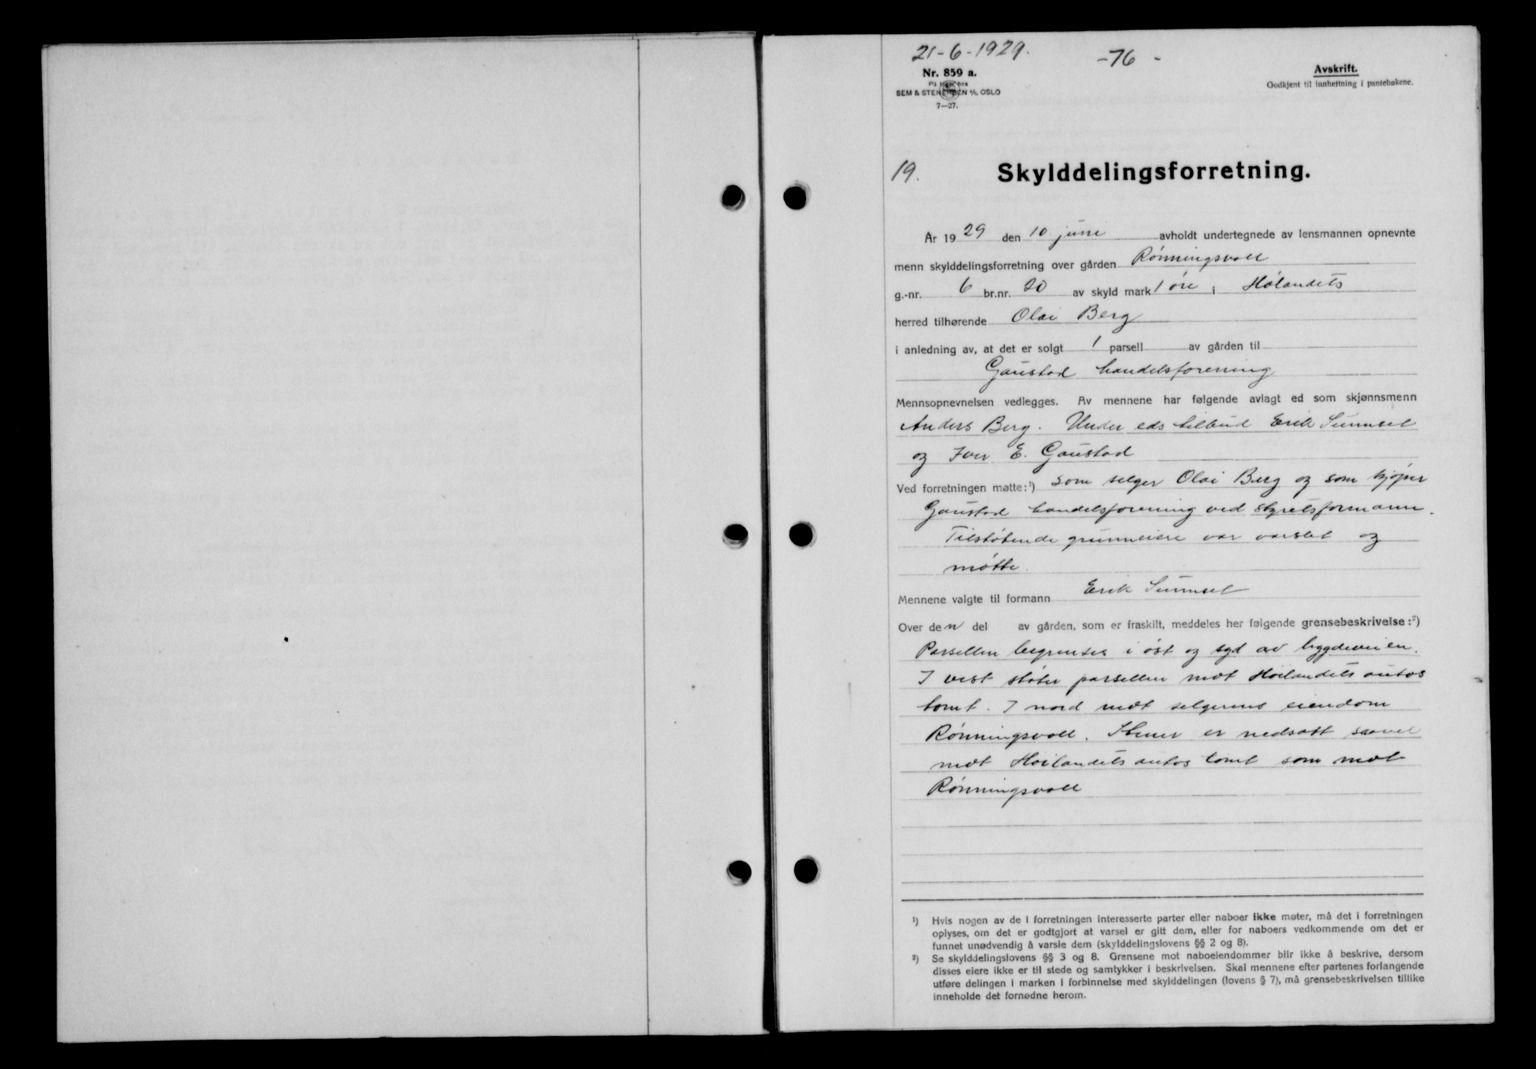 21-6-1929.
-76-
Nr. 859 a.
SEM & STENERSEN A/S. OSLO
7-27.
Avskrift.
Godkjent til innheftning i pantebøkene.
19.
Skylddelingsforretning.
År 1929 den 10 juni avholdt undertegnede av lensmannen opnevnte
menn skylddelingsforretning over gården Rönningsvoll
g.-nr. 6 br.nr. 20 av skyld mark 1 öre i Hölandets
herred tilhørende Olai Berg
i anledning av, at det er solgt 1 parsell av gården til
Gaustad handelsforening
Mennsopnevnelsen vedlegges. Av mennene har følgende avlagt ed som skjønnsmenn
Anders Berg. Under eds tilbud Erik Sumsel
og Iver E. Gaustad
Ved forretningen møtte:¹) som selger Olai Berg og som kjöper
Gaustad handelsforening ved styrets formann.
Tilstötende grunneiere var varslet og
mötte.
Mennene valgte til formann Erik
Over den del av gården, som er fraskilt, meddeles her følgende grensebeskrivelse:²)
Parsellen begrenses i öst og syd av bygdeveien.
I vest stöter parsellen mot Höilandets autos
tomt. I nord mot selgerens eiendom
Rönningsvoll. Stener er nedsatt saavel
mot Höilandets autos tomt som mot
Rönningsvoll
¹) Hvis nogen av de i forretningen interesserte parter eller naboer ikke møter, må det i forretningen
oplyses, om det er godtgjort at varsel er gitt dem, eller for naboers vedkommende om det er
funnet unødvendig å varsle dem (skylddelingslovens §§ 2 og 8).
²) Se skylddelingslovens §§ 3 og 8. Grensene mot naboeiendommer blir ikke å beskrive, dersom
disses eiere ikke er til stede og samtykker i beskrivelsen. Skal mennene efter partenes forlangende
utføre delingen i marken i forbinnelse med skylddelingen (lovens § 7), må grensebeskrivelsen tillike
inneholde det fornødne herom.